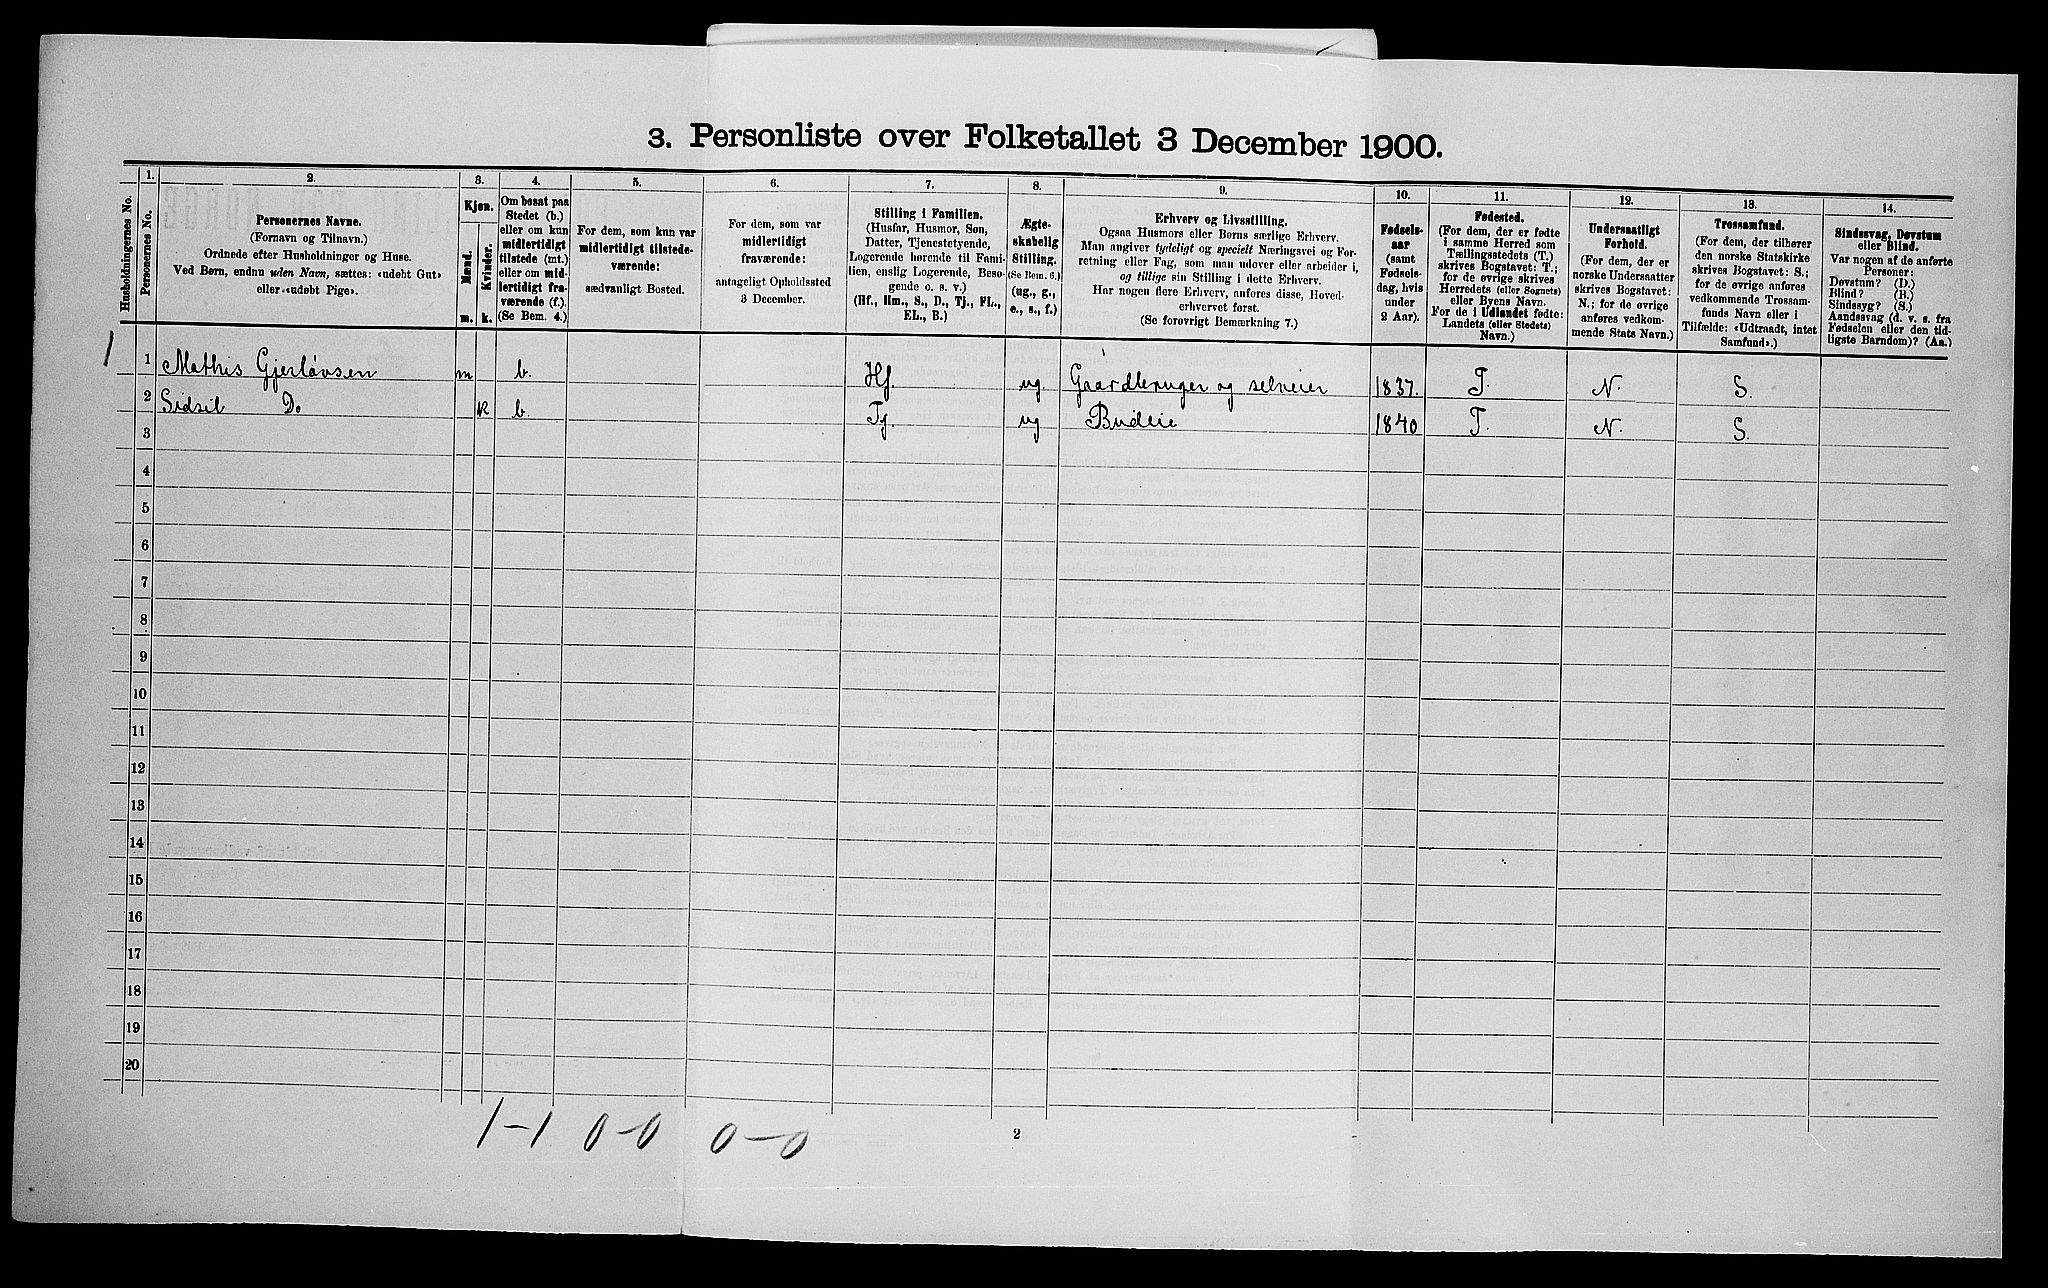 3. Personliste over Folketallet 3 December 1900.
1. 2. 3. 4. 5. 6. 7. 8. 9. 10. 11. 12. 13. 14.
Husholdningernes No.
Personernes No.
Personernes Navne.
(Fornavn og Tilnavn.)
Ordnede efter Husholdninger og Huse.
Ved Børn, endnu uden Navn, sættes: «udøbt Gut»
eller «udøbt Pige».
Kjøn.
Mænd.
Kvinder.
m. k.
Om bosat paa
Stedet (b.)
eller om kun
midlertidigt
tilstede (mt.)
eller om mid-
lertidigt fra-
værende (f.)
(Se Bem. 4.)
For dem, som kun var
midlertidigt tilstede-
værende:
sædvanligt Bosted.
For dem, som var
midlertidigt
fraværende:
antageligt Opholdssted
3 December.
Stilling i Familien.
(Husfar, Husmor, Søn,
Datter, Tjenestetyende,
Logerende hørende til Fami-
lien, enslig Logerende, Besø-
gende o. s. v.)
(Hf., Hm., S., D., Tj., FL.,
EL., B.)
Ægte-
skabelig
Stilling.
(Se Bem. 6.)
(ug., g.,
e., s., f.)
Erhverv og Livsstilling.
Ogsaa Husmors eller Børns særlige Erhverv.
Man angiver tydeligt og specielt Næringsvei og For-
retning eller Fag, som man udover eller arbeider i,
og tillige sin Stilling i dette Erhverv.
Har nogen flere Erhverv, anføres disse, Hoved-
erhvervet først.
(Se forøvrigt Bemærkning 7.)
Fødsels-
aar
(samt
Fødsels-
dag, hvis
under
2 Aar).
Fødested.
(For dem, der er fødte
i samme Herred som
Tællingsstedets (T.)
skrives Bogstavet: T.;
for de øvrige skrives
Herredets (eller Sognets)
eller Byens Navn.
For de i Udlandet fødte:
Landets (eller Stedets)
Navn.)
Undersaatligt
Forhold.
(For dem, der er
norske Undersaatter
skrives Bogstavet:
N.; for de øvrige
anføres vedkom-
mende Stats Navn.)
Trossamfund.
(For dem, der tilhører
den norske Statskirke
skrives Bogstavet: S.;
for de øvrige anføres
vedkommende Trossam-
funds Navn eller i
Tilfælde: «Udtraadt, intet
Samfund».)
Sindssvag, Døvstum
eller Blind.
Var nogen af de anførte
Personer:
Døvstum? (D.)
Blind? (B.)
Sindssyg? (S.)
Aandssvag (d. v. s. fra
Fødselen eller den tid-
ligste Barndom)? (Aa.)
1 1 Mathis Gjerløvsen m b. Hf. ug. Gaardbruger og selveier 1837. T. N. S.
2 Sidsil Do k b. Tj. ug Budeie 1840 T. N. S.
3
4
5
6
7
8
9
10
11
12
13
14
15
16
17
18
19
20
1-1 0-0 0-0
2